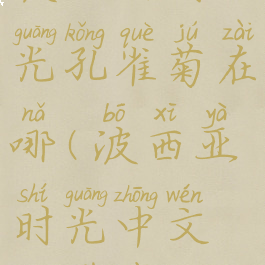 guāng kǒng què jú zài
光孔雀菊在
nǎ bō xī yà
哪(波西亚
shí guāng zhōng wén
时光中文